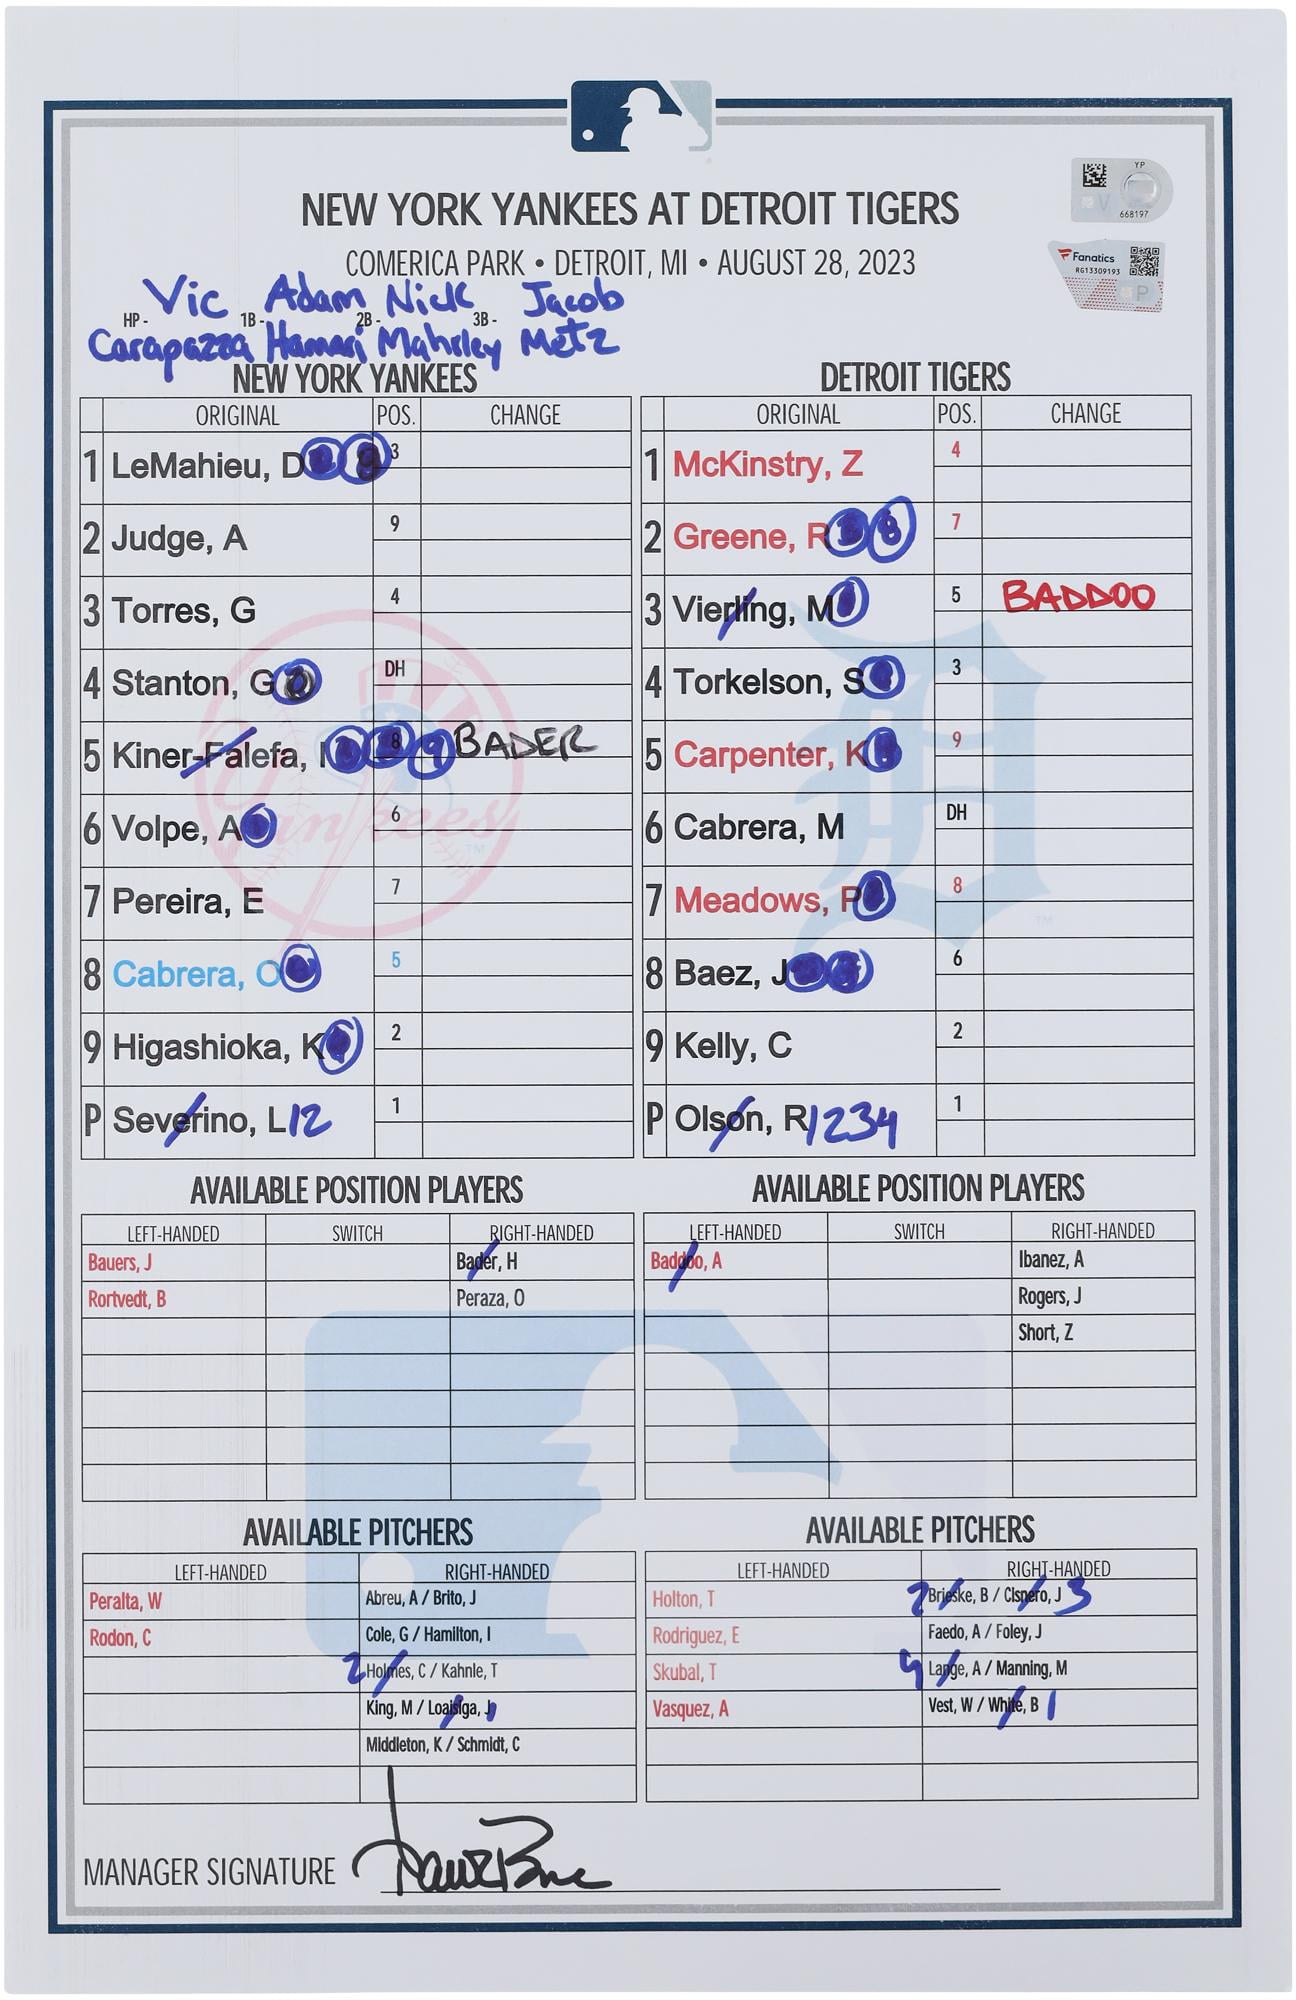 YP
V
668197
NEW YORK YANKEES AT DETROIT TIGERS
COMERICA PARK • DETROIT, MI • AUGUST 28, 2023
Fanatics
RG13309193
P
Vic Adam Nick Jacob
HP- 1B- 2B- 3B-
Carapazza Hamari Mahrley Metz
NEW YORK YANKEES
ORIGINAL POS. CHANGE
1 LeMahieu, D 3
2 Judge, A 9
3 Torres, G 4
4 Stanton, G DH
5 Kiner-Falefa, I 8 9 BADER
6 Volpe, A 6
7 Pereira, E 7
8 Cabrera, O 5
9 Higashioka, K 2
P Severino, L 12 1
DETROIT TIGERS
ORIGINAL POS. CHANGE
1 McKinstry, Z 4
2 Greene, R 8 7
3 Vierling, M 5 BADDOO
4 Torkelson, S 3
5 Carpenter, K 9
6 Cabrera, M DH
7 Meadows, P 8
8 Baez, J 6
9 Kelly, C 2
P Olson, R 1234 1
AVAILABLE POSITION PLAYERS
LEFT-HANDED SWITCH RIGHT-HANDED
Bauers, J Bader, H
Rortvedt, B Peraza, O
AVAILABLE POSITION PLAYERS
LEFT-HANDED SWITCH RIGHT-HANDED
Baddoo, A Ibanez, A
Rogers, J
Short, Z
AVAILABLE PITCHERS
LEFT-HANDED RIGHT-HANDED
Peralta, W Abreu, A / Brito, J
Rodon, C Cole, G / Hamilton, I
2 Holmes, C / Kahnle, T
King, M / Loaisiga, J 1
Middleton, K / Schmidt, C
AVAILABLE PITCHERS
LEFT-HANDED RIGHT-HANDED
Holton, T 2 Brieske, B / Cisnero, J 3
Rodriguez, E Faedo, A / Foley, J
Skubal, T 4 Lange, A / Manning, M
Vasquez, A Vest, W / White, B 1
MANAGER SIGNATURE